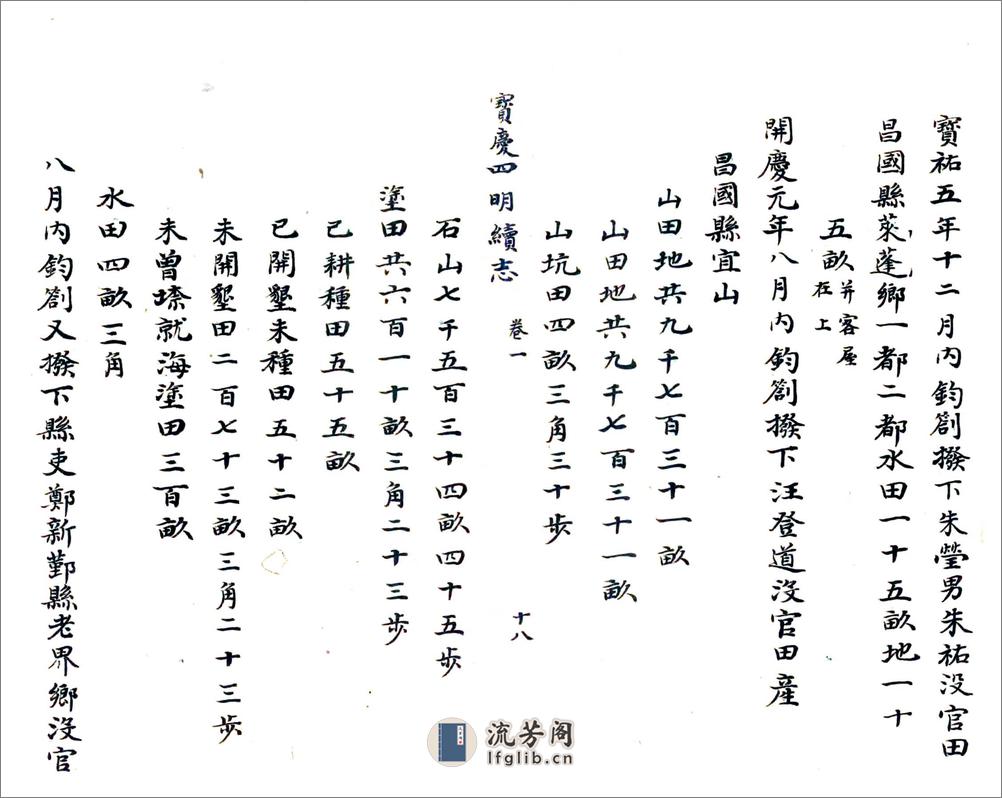 寳祐五年十二月内鈞劄撥下朱瑩男朱祐没官田
昌國縣蓬萊鄉一都二都水田一十五畝地一十
五畝并客屋在上
開慶元年八月内鈞劄撥下汪登道没官田産
昌國縣宜山
山田地共九千七百三十一畝
山田地共九千七百三十一畝
山坑田四畝三角三十步
寳慶四明續志 卷一 十八
石山七千五百三十四畝四十五步
塗田共六百一十畝三角二十三步
已耕種田五十五畝
已開墾未種田五十二畝
未開墾田二百七十三畝三角二十三步
未曾㙞就海塗田三百畝
水田四畝三角
八月内鈞劄又撥下縣吏鄭新鄞縣老界鄉没官
流芳阁
lfglib.cn